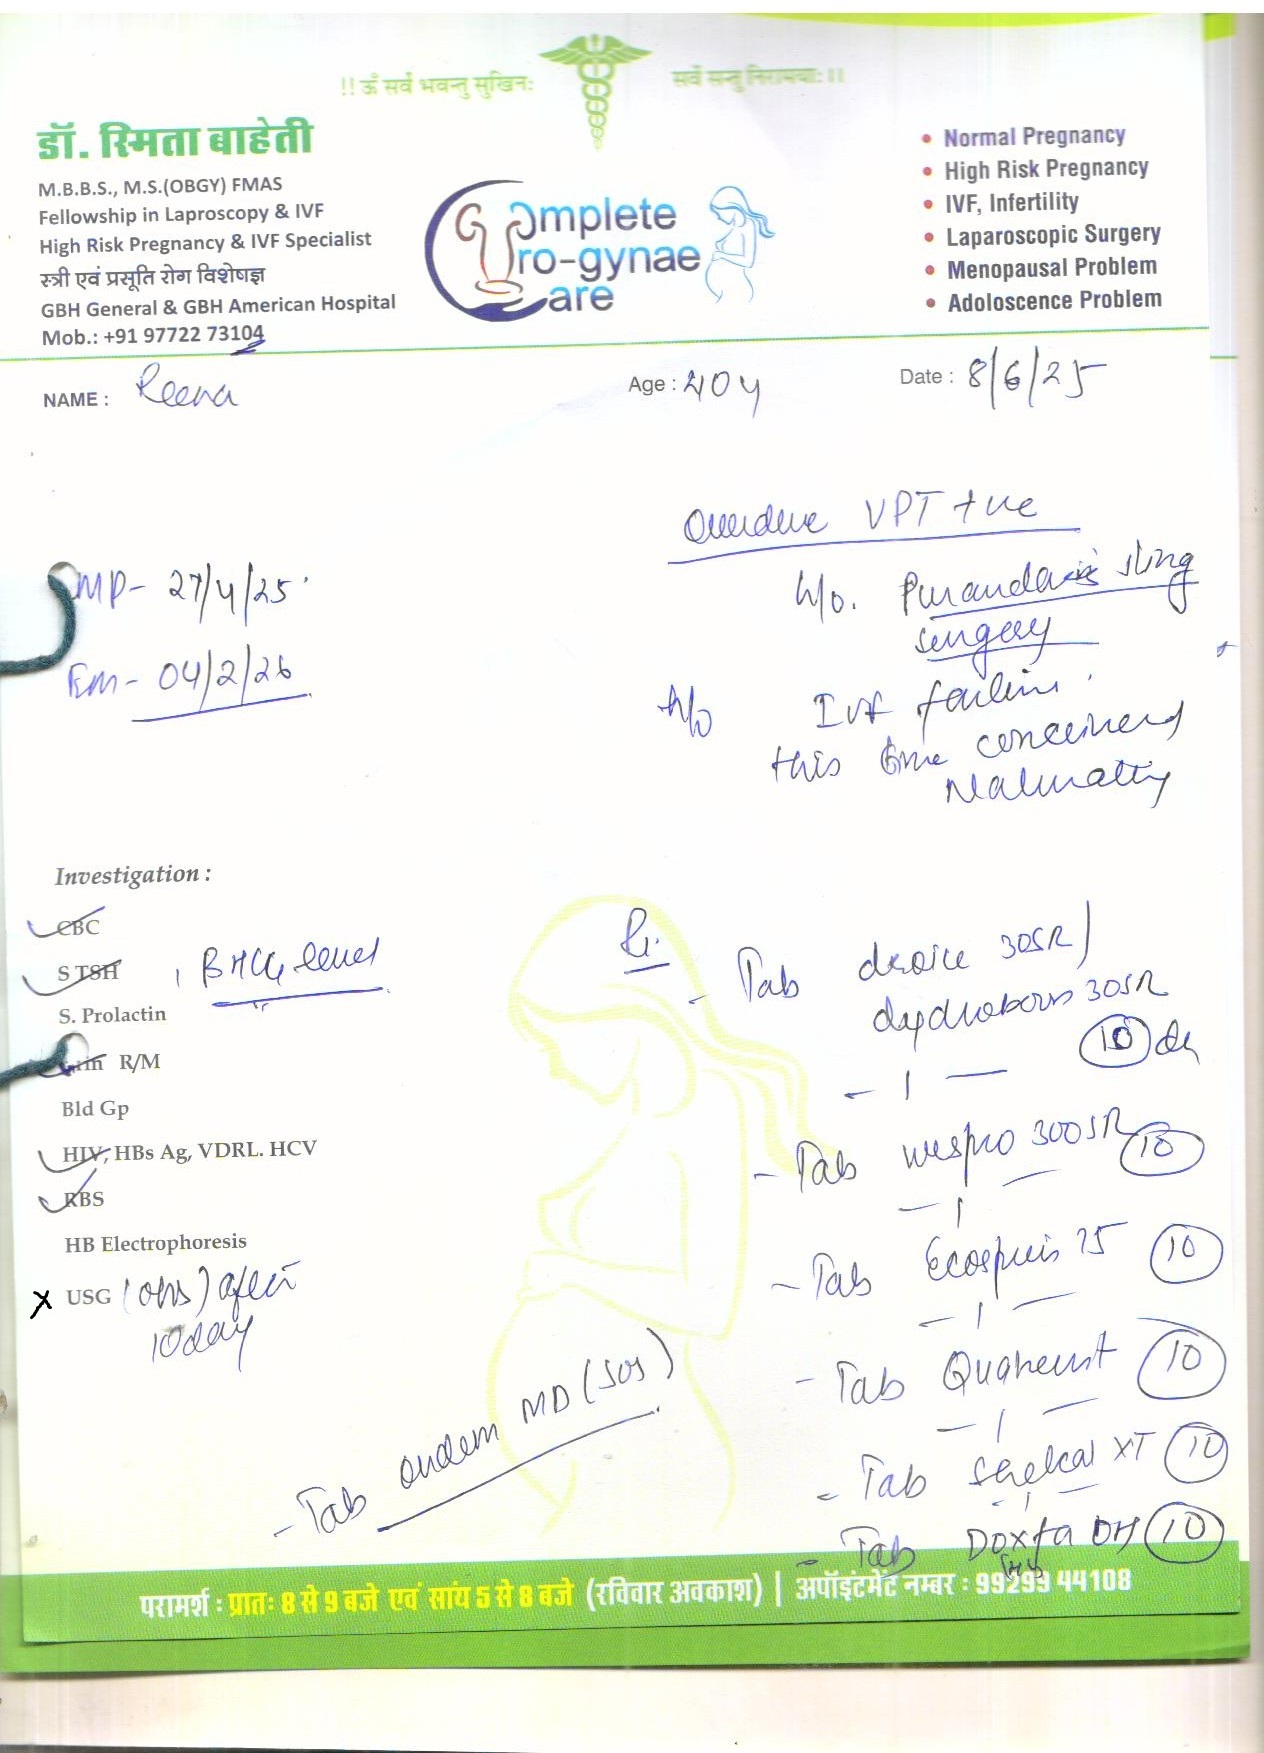 !! ॐ सर्वे भवन्तु सुखिनः
सर्वे सन्तु निरामयाः ।।
डॉ. स्मिता बाहेती
M.B.B.S., M.S.(OBGY) FMAS
Fellowship in Laproscopy & IVF
High Risk Pregnancy & IVF Specialist
स्त्री एवं प्रसूति रोग विशेषज्ञ
GBH General & GBH American Hospital
Mob.: +91 97722 73104
Complete
Uro-gynae
Care
• Normal Pregnancy
• High Risk Pregnancy
• IVF, Infertility
• Laparoscopic Surgery
• Menopausal Problem
• Adoloscence Problem
NAME : Reena
Age : 40 y
Date : 8/6/25
Overdue VPT +ve
h/o. Purandare's sling
surgery
h/o IVF failure
this time conceived
Naturally
LMP- 27/4/25
04/2/26
Investigation :
CBC
S TSH , BHCG level
S. Prolactin
R/M
Bld Gp
HIV, HBs Ag, VDRL. HCV
RBS
HB Electrophoresis
X USG (obs) after
10 day
- Tab 30SR/
30SR
10
- 1 -
- Tab 300SR 10
- 1 -
- Tab Ecosprin 75 10
- 1 -
- Tab 10
- 1 -
- Tab Shelcal XT 10
- 1 -
- Tab 10
- Tab ondem MD (SOS)
परामर्श : प्रातः 8 से 9 बजे एवं सांय 5 से 8 बजे (रविवार अवकाश) | अपॉइंटमेंट नम्बर : 99299 44108